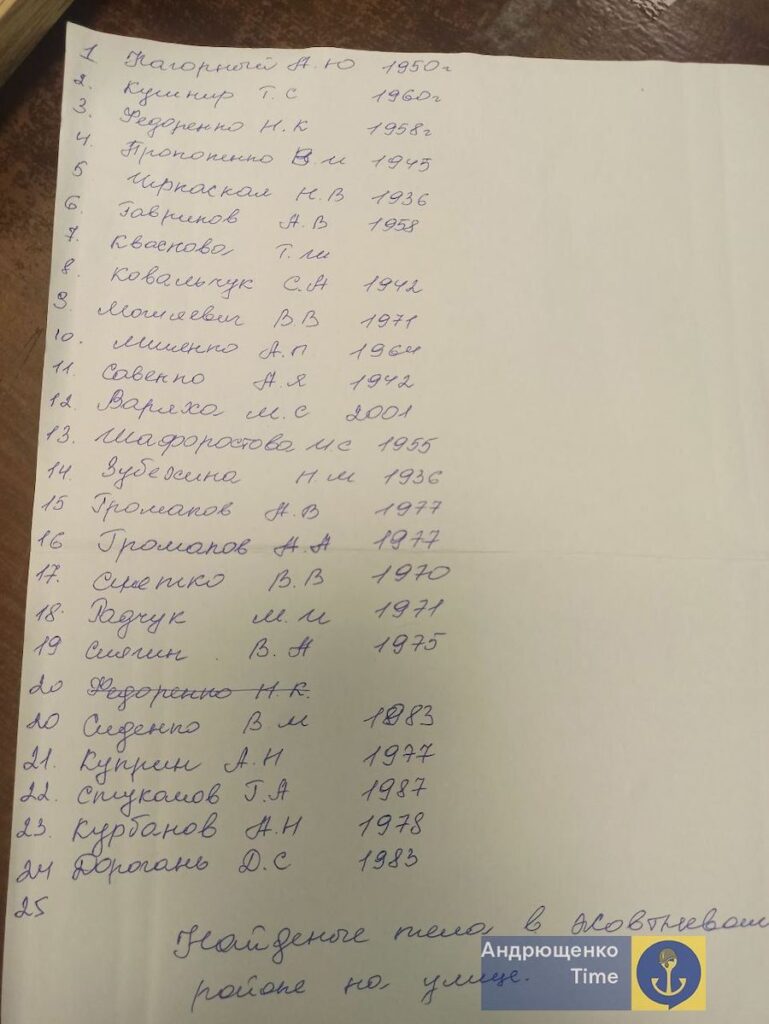 1 Нагорный А.Ю 1950г
2. Кушнир Т.С 1960г
3. Федоренко Н.К 1958г
4. Прокопенко В.И 1945
5 Чиркаская Н.В 1936
6. Гавриков А.В 1958
7. Кваскова Т.Ш
8. Ковальчук С.А 1942
9. Могилевич В.В 1971
10. Мишенко А.П 1964
11. Савенко А.Я 1942
12. Варяха М.С 2001
13. Шафоростова И.С 1955
14. Зубехина Н М 1936
15 Громаков А.В 1977
16 Громаков А.А 1977
17. Снетко В.В 1970
18. Радчук М.И 1971
19 Сиягин В.А 1975
20 Федоренко Н.К.
20 Сиденко В.М 1983
21. Куприн А.Н 1977
22. Стукалов Г.А 1987
23. Курбанов А.Н 1978
24 Дорогань Д.С 1983
25
Найденые тела в Жовтневом
районе на улице.
Андрющенко
Time